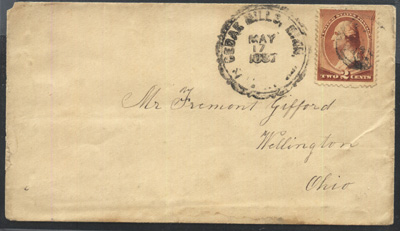 CEDAR MILLS, MINN
MAY
17
1887
UNITED STATES POSTAGE
TWO 2 CENTS
Mr Fremont Gifford
Wellington
Ohio